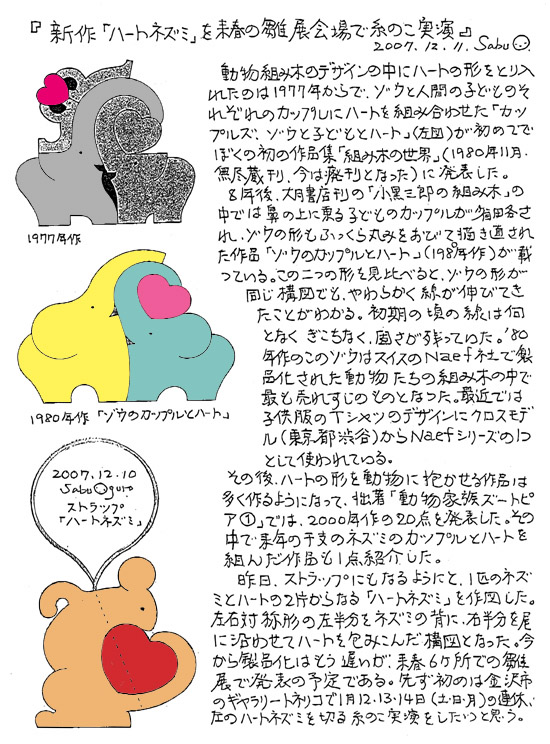 『新作「ハートネズミ」を来春の雛展会場で糸のこ実演』
2007.12.11. Sabu
動物組み木のデザインの中にハートの形をとり入
れたのは1977年からで、ゾウと人間の子どものそ
れぞれのカップルにハートを組み合わせた「カッ
プルズ、ゾウと子どもとハート」(左図)が初めてで
ぼくの初の作品集「組み木の世界」(1980年11月・
無尽蔵刊、今は廃刊となった)に発表した。
8年後、大月書店刊の「小黒三郎の組み木」の
中では鼻の上に乗る子どものカップルが省略さ
れ、ゾウの形もふっくら丸みをおびて描き直され
た作品「ゾウのカップルとハート」(1980年作)が載
っている。この二つの形を見比べると、ゾウの形が
同じ構図でも、やわらかく線が伸びてき
たことがわかる。初期の頃の線は何
となくぎこちなく、固さが残っていた。'80
年作のこのゾウはスイスのNaef社で製
品化された動物たちの組み木の中で
最も売れすじのものとなった。最近では
子供服のTシャツのデザインにクロスモデ
ル(東京都渋谷)からNaefシリーズの1つ
として使われている。
その後、ハートの形を動物に抱かせる作品は
多く作るようになって、拙著「動物家族ズートピ
ア①」では、2000年作の20点を発表した。その
中で来年の干支のネズミのカップルとハートを
組んだ作品も1点紹介した。
昨日、ストラップにもなるようにと、1匹のネズ
ミとハートの2片からなる「ハートネズミ」を作図した。
左右対称形の左半分をネズミの背に、右半分を尾
に沿わせてハートを包みこんだ構図となった。今
から製品化はもう遅いが、来春6ヶ所での雛
展で発表の予定である。先ず初めは金沢市
のギャラリートネリコで1月12・13・14日(土・日・月)の連休、
左のハートネズミを切る糸のこ実演をしたいと思う。
1977年作
1980年作「ゾウのカップルとハート」
2007.12.10
Sabu Oguro
ストラップ
「ハートネズミ」